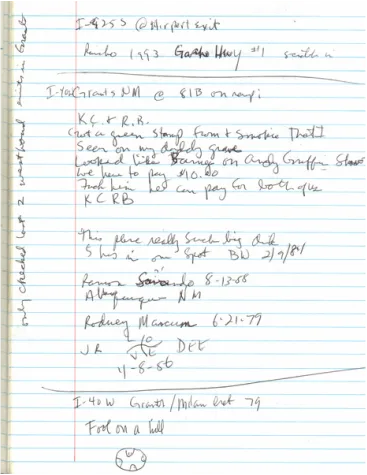 I-9253 @ Airport exit
1993 Hwy #1
I-40 Grants NM @ 81B
K.C. & R.B.
Got a green stamp from & Smokie That I
Seen on my daddy grave
Looked like Barney on Andy Griffin Show
We have to pay $10.00
him he can pay for both of us
K C R B
This place really Sucks big
5 hrs in one Spot BW 2/9/84
Ramon 8-13-88
Albuquerque NM
Rodney Marcum 6-21-79
JR DEE
11-8-86
I-40 W Grants/Milan 79
Fool on a hill
only checked last 2 westbound in Grants